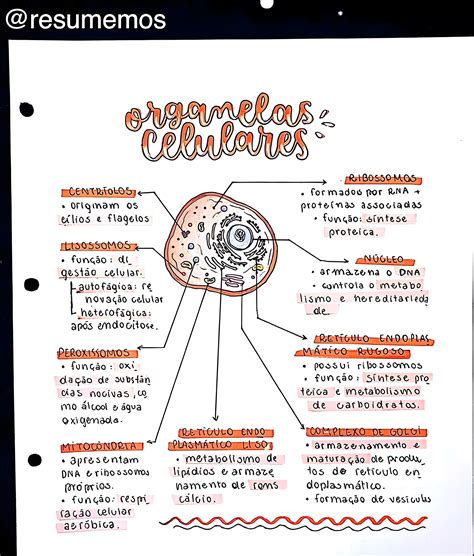 @resumemos
organelas
celulares
CENTRÍOLOS
• originam os
cílios e flagelos
LISOSSOMOS
• função: di
gestão celular.
autofágica: re
novação celular
heterofágica:
após endocitose.
PEROXISSOMOS
• função: oxi
dação de substân
cias nocivas, co
mo álcool e água
oxigenada.
MITOCÔNDRIA
• apresentam
DNA e ribossomos
próprios.
• função: respi
ração celular
aeróbica.
RETÍCULO ENDO
PLASMÁTICO LISO:
• metabolismo de
lipídios e armaze
namento de íons
cálcio.
RIBOSSOMOS
• formados por RNA +
proteínas associadas
• função: síntese
proteica.
NÚCLEO
• armazena o DNA
• controla o metabo
lismo e hereditarieda
de.
RETÍCULO ENDOPLAS
MÁTICO RUGOSO
• possui ribossomos
• função: síntese pro
teica e metabolismo
de carboidratos.
COMPLEXO DE GOLGI
• armazenamento e
maturação de produ
tos do retículo en
doplasmático.
• formação de vesículas